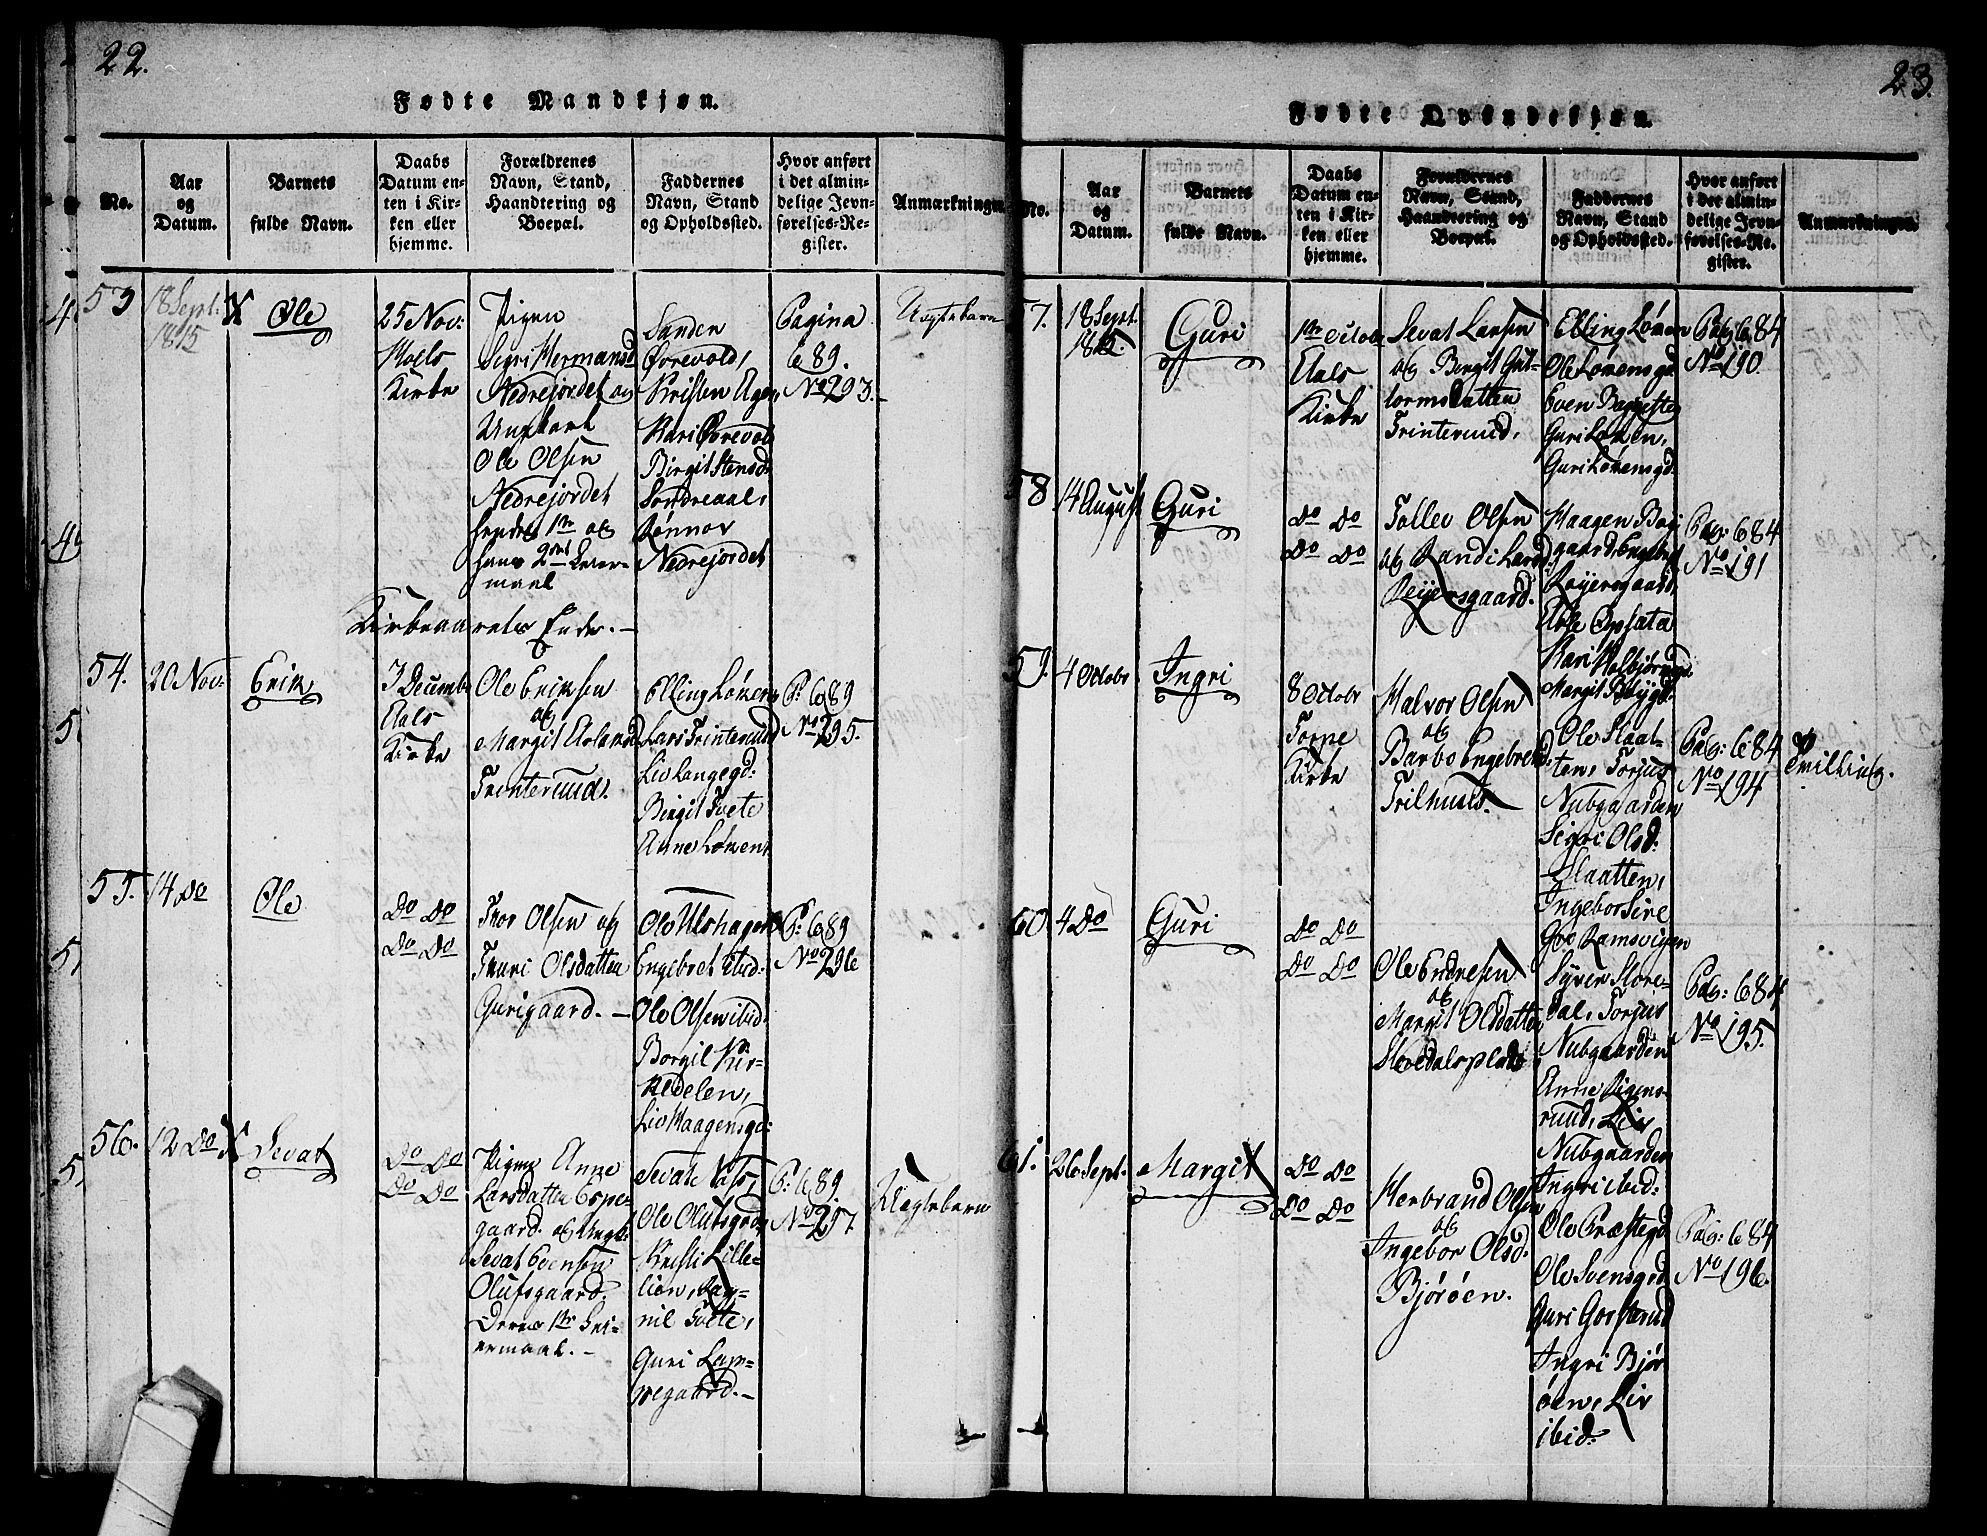 22.
Fødte Mandkjøn.
No.
Aar og Datum.
Barnets fulde Navn.
Daabs Datum enten i Kirken eller hjemme.
Forældrenes Navn, Stand, Haandtering og Boepæl.
Faddernes Navn, Stand og Opholdssted.
Hvor anført i det almindelige Jevnførelses-Register.
Anmærkninger
53
18 Sept.
1815
Ole
25 Nov:
Hoels
Kirke
Pigen
Sigri Hermansd
Nedrejordet og
Ungkarl
Ole Olsen
Nedrejordet
hendes 1te og
hans 2det Leier-
maal
Sanden
Ørevold,
Kristen Agen,
Kari Ørevol
Birgit Stensd
Sondreaal,
Rønnov
Nedrejordet
Pagina
689.
No 293.
Uægtebarn
Kirkeaarets Ende. —
54.
20 Nov:
Erik
3 Decemb
Aals
Kirke
Ole Eriksen
og
Margit Erlands
Trinterud.
Elling Løken
Lars Trinterud
Liv Langegd:
Birgit Tvete
Anne Løken
P: 689
No 295.
55.
14 Do
Ole
Do Do
Do Do
Thor Olsen og
Thuri Olsdatter
Gurigaard. —
Ole Ulshagen
Engebret ibid:
Ole Olsen ibid:
Borgil Kir-
kedelen,
Liv Haagensgd:
P: 689
No 296
56.
12 Do
Sevat
Do Do
Do Do
Pigen Anne
Larsdatter Espe-
gaard og Ungk:
Sevat Evensen
Olufsgaard.
Deres 1te Lei-
ermaal. —
Sevat Vass,
Ole Olufsgard
Kristi Lille-
lien, Rag-
nil Tvete,
Guri Lap-
pegaard. —
P: 689.
No 297.
Uægtebarn
23.
Fødte Qvindekjøn.
No.
Aar og Datum.
Barnets fulde Navn.
Daabs Datum enten i Kirken eller hjemme.
Forældrenes Navn, Stand, Haandtering og Boepæl.
Faddernes Navn, Stand og Opholdssted.
Hvor anført i det almindelige Jevnførelses-Register.
Anmærkninger.
57.
18 Sept.
1815
Guri
1te Octobr
Aals
Kirke
Sevat Larsen
og Birgit Gut-
tormsdatter
Trinterud,
Elling Løken
Ole Løkensgd
Even Baggeste
Guri Løken,
Guri Løkensgd.
Pag: 684
No 190.
58
14 August
Guri
Do Do
Do Do
Tollev Olsen
og Randi Larsd:
Reijersgaard.
Haagen Boy
gaard, Engebret
Reijersgaard,
Able Opsata
Kari
Margit Bøygd.
Pag: 684
No 191
59.
4 Octobr
Ingri
8 Octobr
Torpe
Kirke
Halvor Olsen
og
Barbo Engebretsd:
Trilhus.
Ole Slaat-
ten, Torjus
Nubgaarden
Sigri Olsd:
Slaatten,
Ingebor Sire
Gro Ramsvigen
Pag: 684
No 194
Tvilling.
60.
4 Do
Guri
Do Do
Do Do
Ole Endresen
og
Margit Olsdatter
Storedalsplads
Syver Store-
dal, Torjus
Nubgaarden
Anne Rigens-
ruud, Liv
Nubgaarden
Ingri ibid:
Pag: 684
No 195.
61.
26 Sept.
Margit
Do Do
Do Do
Herbrand Olsen
og
Ingebor Olsd.
Bjørøen.
Ole Præstegd
Ole Svensgrd
Guri Gorsterud
Ingri Bjør
øen, Liv
ibid:
Pag: 684
No 196.